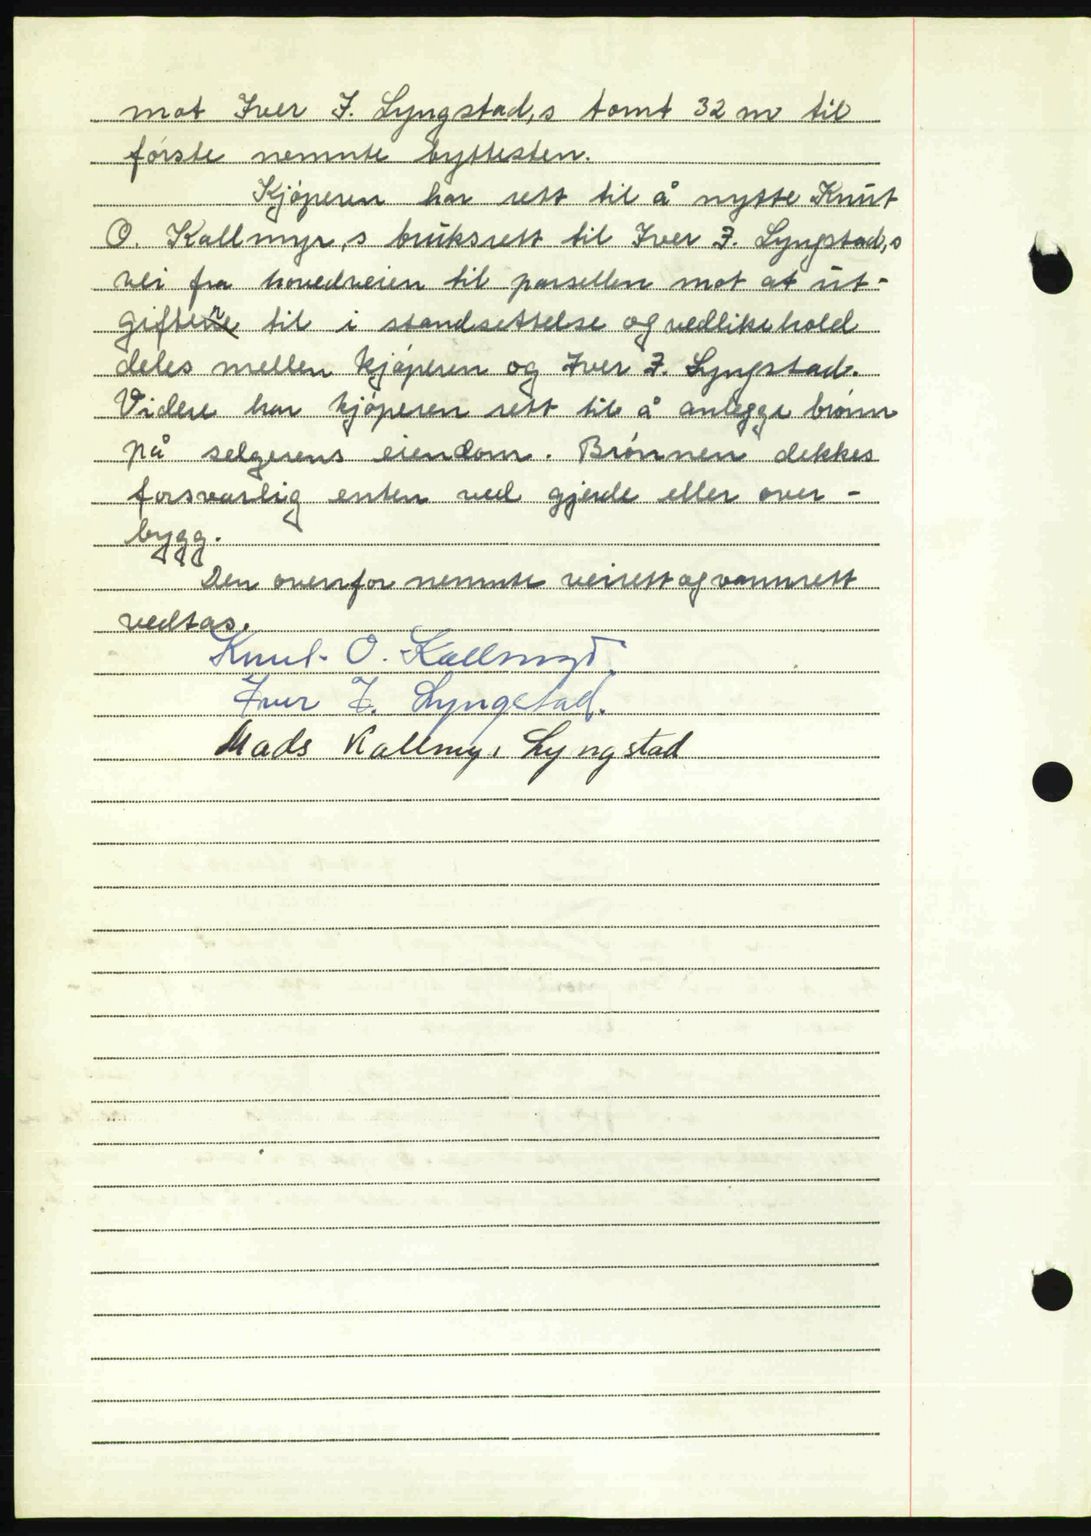 mot Iver J. Lyngstad,s tomt 32 m til
første nemnte byttesten.
Kjøperen har rett til å nytte Knut
O. Kallmyr,s bruksrett til Iver J. Lyngstad,s
vei fra hovedveien til parsellen mot at ut-
giftene til i standsettelse og vedlikehold
deles mellen kjøperen og Iver J. Lyngstad.
Videre har kjøperen rett til å anlegge brønn
på selgerens eiendom. Brønnen dekkes
forsvarlig enten ved gjerde eller over-
bygg.
Den ovenfor nemnte veirett og vannrett
vedtas.
Knut O. Kallmyr.
Iver J. Lyngstad.
Mads Kallmyr Lyngstad